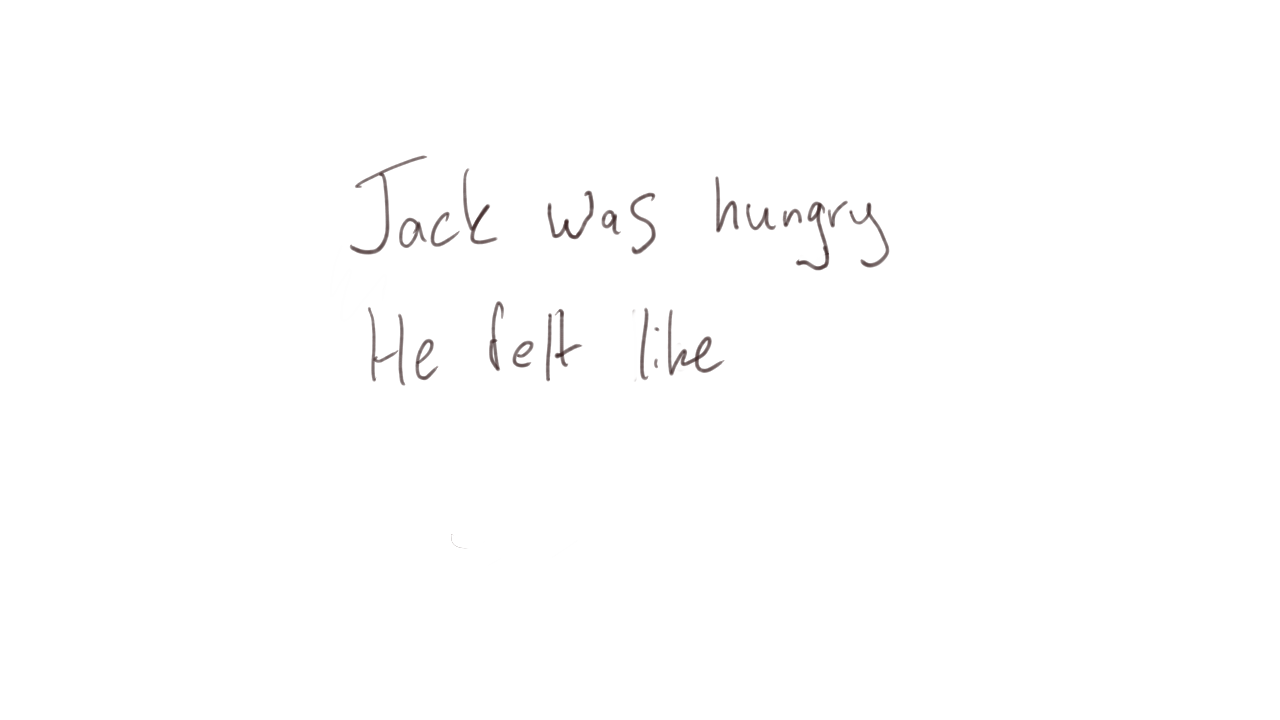 Jack was hungry
He felt like